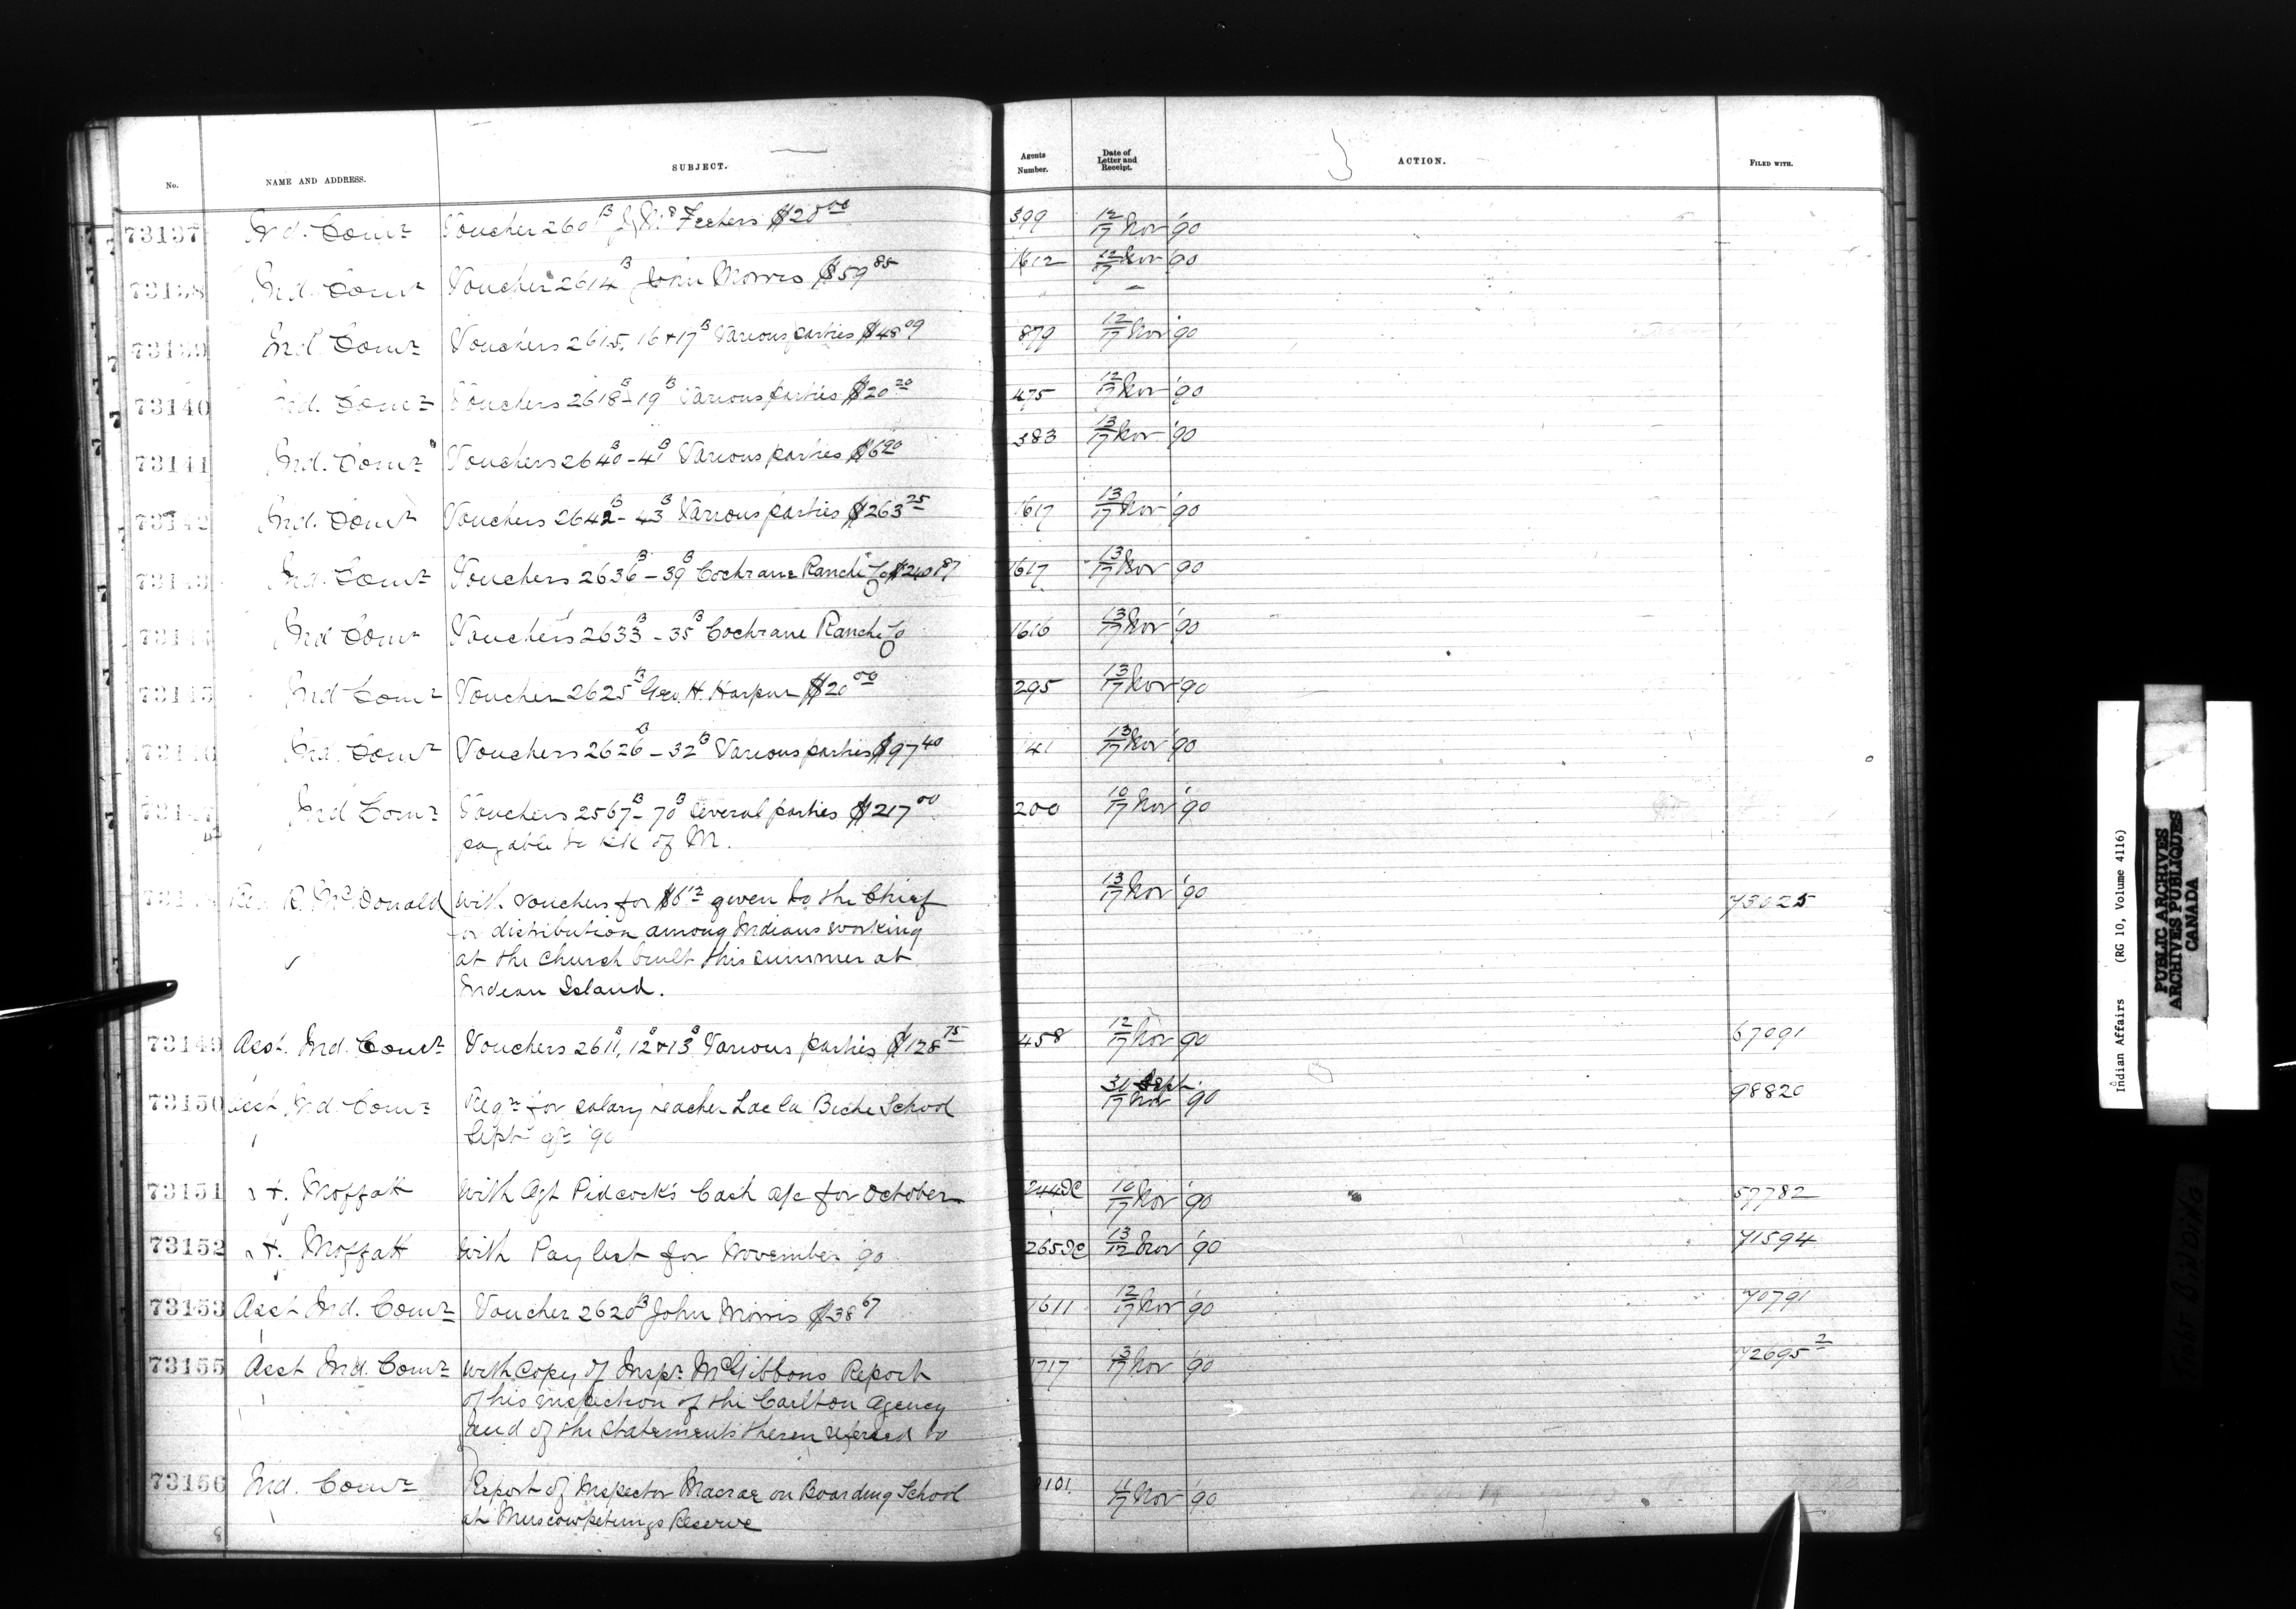 No. NAME AND ADDRESS. SUBJECT. Agents Number. Date of Letter and Receipt. ACTION. FILED WITH.
73137 Ind. Comr Voucher 260 B $20 00 399 12/17 Nov '90
73138 Ind. Comr Voucher 2614 B John Morris $59 85 1612 12/17 Nov '90
73139 Ind. Comr Vouchers 2615, 16 + 17 B Various parties $48 09 879 12/17 Nov '90
73140 Ind. Comr Vouchers 2618 B - 19 B Various parties $20 20 475 12/17 Nov '90
73141 Ind. Comr Vouchers 2640 B - 41 B Various parties $6 20 383 13/17 Nov '90
73142 Ind. Comr Vouchers 2642 B - 43 B Various parties $263 25 1617 13/17 Nov '90
73143 Ind. Comr Vouchers 2636 B - 39 B Cochrane Ranche Co 1617 13/17 Nov '90
73144 Ind Comr Vouchers 2633 B - 35 B Cochrane Ranche Co 1616 13/17 Nov '90
73145 Ind Comr Voucher 2625 B Geo. H. Harpur $20 00 295 13/17 Nov '90
73146 Ind. Comr Vouchers 2626 B - 32 B Various parties $97 40 41 13/17 Nov '90
73147 Ind Comr Vouchers 2567 B - 70 B Several parties $217 00 200 10/17 Nov '90
payable to Bk of M.
73148 Rev R. McDonald With vouchers for $6 12 given to the Chief 13/17 Nov '90 73025
for distribution among Indians working
at the church built this summer at
Indian Island.
73149 Asst. Ind. Comr Vouchers 2611, 12 + 13 B Various parties $128 75 458 12/17 Nov '90 67091
73150 Asst Ind. Comr Reqn for salary teacher Lac la Biche School 30 Sept. / 17 Nov '90 98820
Septr qr '90
73151 H. Moffatt With Agt Pidcock's Cash a/c for October 244 10/17 Nov '90 57782
73152 H. Moffatt With Paylist for November '90 265 13/17 Nov '90 71594
73153 Asst Ind. Comr Voucher 2620 B John Morris $38 67 1611 12/17 Nov '90 70791
73155 Asst Ind. Comr With copy of Inspr McGibbons Report 1717 13/17 Nov '90 72695 2
of his inspection of the Carlton Agency
and of the statements therein referred to
73156 Ind. Comr Report of Inspector Macrae on Boarding School 101 11/17 Nov '90
at Muscowpetungs Reserve
8
Indian Affairs (RG 10, Volume 4116)
PUBLIC ARCHIVES
ARCHIVES PUBLIQUES
CANADA